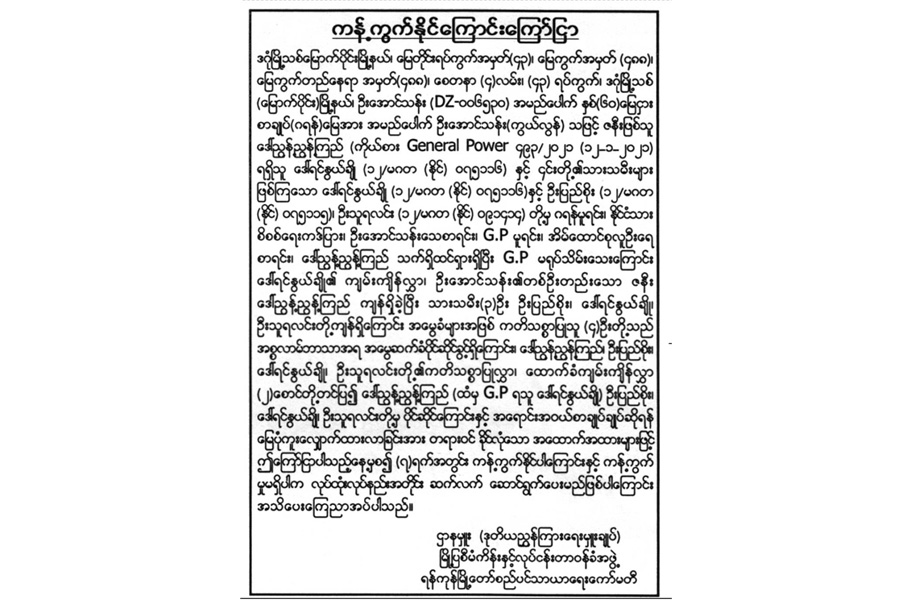 ကန့်ကွက်နိုင်ကြောင်းကြော်ငြာ
ဒဂုံမြို့သစ်မြောက်ပိုင်းမြို့နယ်၊ မြေတိုင်းရပ်ကွက်အမှတ်(၄၃)၊ မြေကွက်အမှတ် (၄၈၈)၊
မြေကွက်တည်နေရာ အမှတ်(၄၈၈)၊ စေတနာ (၄)လမ်း၊ (၄၃) ရပ်ကွက်၊ ဒဂုံမြို့သစ်
(မြောက်ပိုင်း)မြို့နယ်၊ ဦးအောင်သန်း (DZ-၀၀၆၅၃၀) အမည်ပေါက် နှစ်(၆၀)မြေငှား
စာချုပ်(ဂရန်)မြေအား အမည်ပေါက် ဦးအောင်သန်း(ကွယ်လွန်) သဖြင့် ဇနီးဖြစ်သူ
ဒေါ်ညွန့်ညွန့်ကြည် (ကိုယ်စား General Power ၄၉၃/၂၀၂၁ (၁၂-၁-၂၀၂၁)
ရရှိသူ ဒေါ်ရင်နွယ်ချို (၁၂/မဂတ (နိုင်) ၀၇၅၁၁၆) နှင့် ၎င်းတို့၏သားသမီးများ
ဖြစ်ကြသော ဒေါ်ရင်နွယ်ချို (၁၂/မဂတ (နိုင်) ၀၇၅၁၁၆)နှင့် ဦးပြည်စိုး (၁၂/မဂတ
(နိုင်) ၀၇၅၁၁၅)၊ ဦးသူရလင်း (၁၂/မဂတ (နိုင်) ၀၉၁၄၁၄) တို့မှ ဂရန်မူရင်း၊ နိုင်ငံသား
စိစစ်ရေးကဒ်ပြား၊ ဦးအောင်သန်းသေစာရင်း၊ G.P မူရင်း၊ အိမ်ထောင်စုလူဦးရေ
စာရင်း၊ ဒေါ်ညွန့်ညွန့်ကြည် သက်ရှိထင်ရှားရှိပြီး G.P မရုပ်သိမ်းသေးကြောင်း
ဒေါ်ရင်နွယ်ချို၏ ကျမ်းကျိန်လွှာ၊ ဦးအောင်သန်း၏တစ်ဦးတည်းသော ဇနီး
ဒေါ်ညွန့်ညွန့်ကြည် ကျန်ရှိခဲ့ပြီး သားသမီး(၃)ဦး ဦးပြည်စိုး၊ ဒေါ်ရင်နွယ်ချို၊
ဦးသူရလင်းတို့ကျန်ရှိကြောင်း အမွေခံများအဖြစ် ကတိသစ္စာပြုသူ (၄)ဦးတို့သည်
အစ္စလာမ်ဘာသာအရ အမွေဆက်ခံပိုင်ဆိုင်ခွင့်ရှိကြောင်း၊ ဒေါ်ညွန့်ညွန့်ကြည်၊ ဦးပြည်စိုး၊
ဒေါ်ရင်နွယ်ချို၊ ဦးသူရလင်းတို့၏ကတိသစ္စာပြုလွှာ၊ ထောက်ခံကျမ်းကျိန်လွှာ
(၂)စောင်တို့တင်ပြ၍ ဒေါ်ညွန့်ညွန့်ကြည် (ထံမှ G.P ရသူ ဒေါ်ရင်နွယ်ချို) ဦးပြည်စိုး၊
ဒေါ်ရင်နွယ်ချို၊ ဦးသူရလင်းတို့မှ ပိုင်ဆိုင်ကြောင်းနှင့် အရောင်းအဝယ်စာချုပ်ချုပ်ဆိုရန်
မြေပုံကူးလျှောက်ထားလာခြင်းအား တရားဝင် ခိုင်လုံသော အထောက်အထားများဖြင့်
ဤကြော်ငြာပါသည့်နေ့မှစ၍ (၇)ရက်အတွင်း ကန့်ကွက်နိုင်ပါကြောင်းနှင့် ကန့်ကွက်
မှုမရှိပါက လုပ်ထုံးလုပ်နည်းအတိုင်း ဆက်လက် ဆောင်ရွက်ပေးမည်ဖြစ်ပါကြောင်း
အသိပေးကြေညာအပ်ပါသည်။
ဌာနမှူး (ဒုတိယညွှန်ကြားရေးမှူးချုပ်)
မြို့ပြစီမံကိန်းနှင့်လုပ်ငန်းတာဝန်ခံအဖွဲ့
ရန်ကုန်မြို့တော်စည်ပင်သာယာရေးကော်မတီ